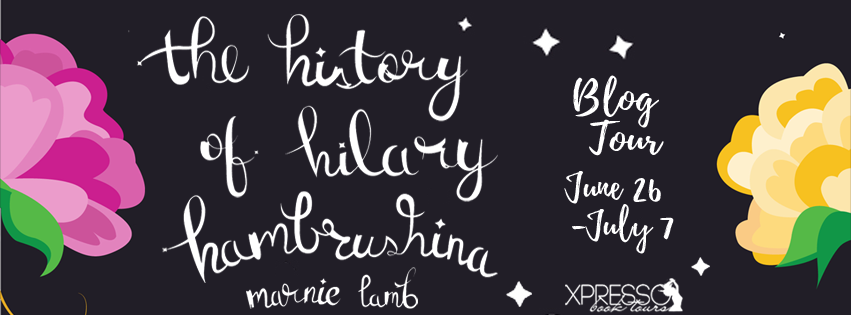 the history
of hilary
hambrushina
marnie lamb
Blog
Tour
June 26
-July 7
XPRESSO
book tours